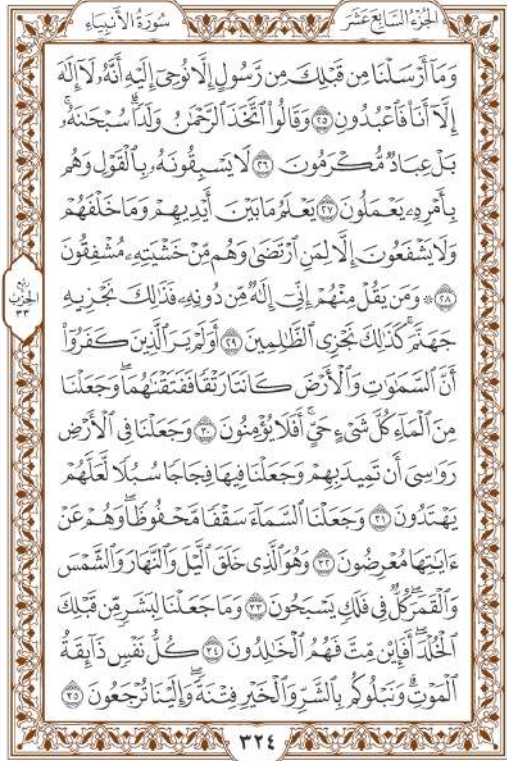 الجُزءُ السَّابِعَ عَشَرَ
سُورَةُ الأَنبِيَاءِ
وَمَآ أَرْسَلْنَا مِن قَبْلِكَ مِن رَّسُولٍ إِلَّا نُوحِىٓ إِلَيْهِ أَنَّهُۥ لَآ إِلَٰهَ
إِلَّآ أَنَا۠ فَٱعْبُدُونِ ٢٥ وَقَالُوا۟ ٱتَّخَذَ ٱلرَّحْمَٰنُ وَلَدًا ۗ سُبْحَٰنَهُۥ ۚ
بَلْ عِبَادٌ مُّكْرَمُونَ ٢٦ لَا يَسْبِقُونَهُۥ بِٱلْقَوْلِ وَهُم
بِأَمْرِهِۦ يَعْمَلُونَ ٢٧ يَعْلَمُ مَا بَيْنَ أَيْدِيهِمْ وَمَا خَلْفَهُمْ
وَلَا يَشْفَعُونَ إِلَّا لِمَنِ ٱرْتَضَىٰ وَهُم مِّنْ خَشْيَتِهِۦ مُشْفِقُونَ
٢٨ ۞ وَمَن يَقُلْ مِنْهُمْ إِنِّىٓ إِلَٰهٌ مِّن دُونِهِۦ فَذَٰلِكَ نَجْزِيهِ
جَهَنَّمَ ۚ كَذَٰلِكَ نَجْزِى ٱلظَّٰلِمِينَ ٢٩ أَوَلَمْ يَرَ ٱلَّذِينَ كَفَرُوٓا۟
أَنَّ ٱلسَّمَٰوَٰتِ وَٱلْأَرْضَ كَانَتَا رَتْقًا فَفَتَقْنَٰهُمَا ۖ وَجَعَلْنَا
مِنَ ٱلْمَآءِ كُلَّ شَىْءٍ حَىٍّ ۖ أَفَلَا يُؤْمِنُونَ ٣٠ وَجَعَلْنَا فِى ٱلْأَرْضِ
رَوَٰسِىَ أَن تَمِيدَ بِهِمْ وَجَعَلْنَا فِيهَا فِجَاجًا سُبُلًا لَّعَلَّهُمْ
يَهْتَدُونَ ٣١ وَجَعَلْنَا ٱلسَّمَآءَ سَقْفًا مَّحْفُوظًا ۖ وَهُمْ عَنْ
ءَايَٰتِهَا مُعْرِضُونَ ٣٢ وَهُوَ ٱلَّذِى خَلَقَ ٱلَّيْلَ وَٱلنَّهَارَ وَٱلشَّمْسَ
وَٱلْقَمَرَ ۖ كُلٌّ فِى فَلَكٍ يَسْبَحُونَ ٣٣ وَمَا جَعَلْنَا لِبَشَرٍ مِّن قَبْلِكَ
ٱلْخُلْدَ ۖ أَفَإِي۟ن مِّتَّ فَهُمُ ٱلْخَٰلِدُونَ ٣٤ كُلُّ نَفْسٍ ذَآئِقَةُ
ٱلْمَوْتِ ۗ وَنَبْلُوكُم بِٱلشَّرِّ وَٱلْخَيْرِ فِتْنَةً ۖ وَإِلَيْنَا تُرْجَعُونَ ٣٥
رُبع
الحِزْب
٣٣
٣٢٤